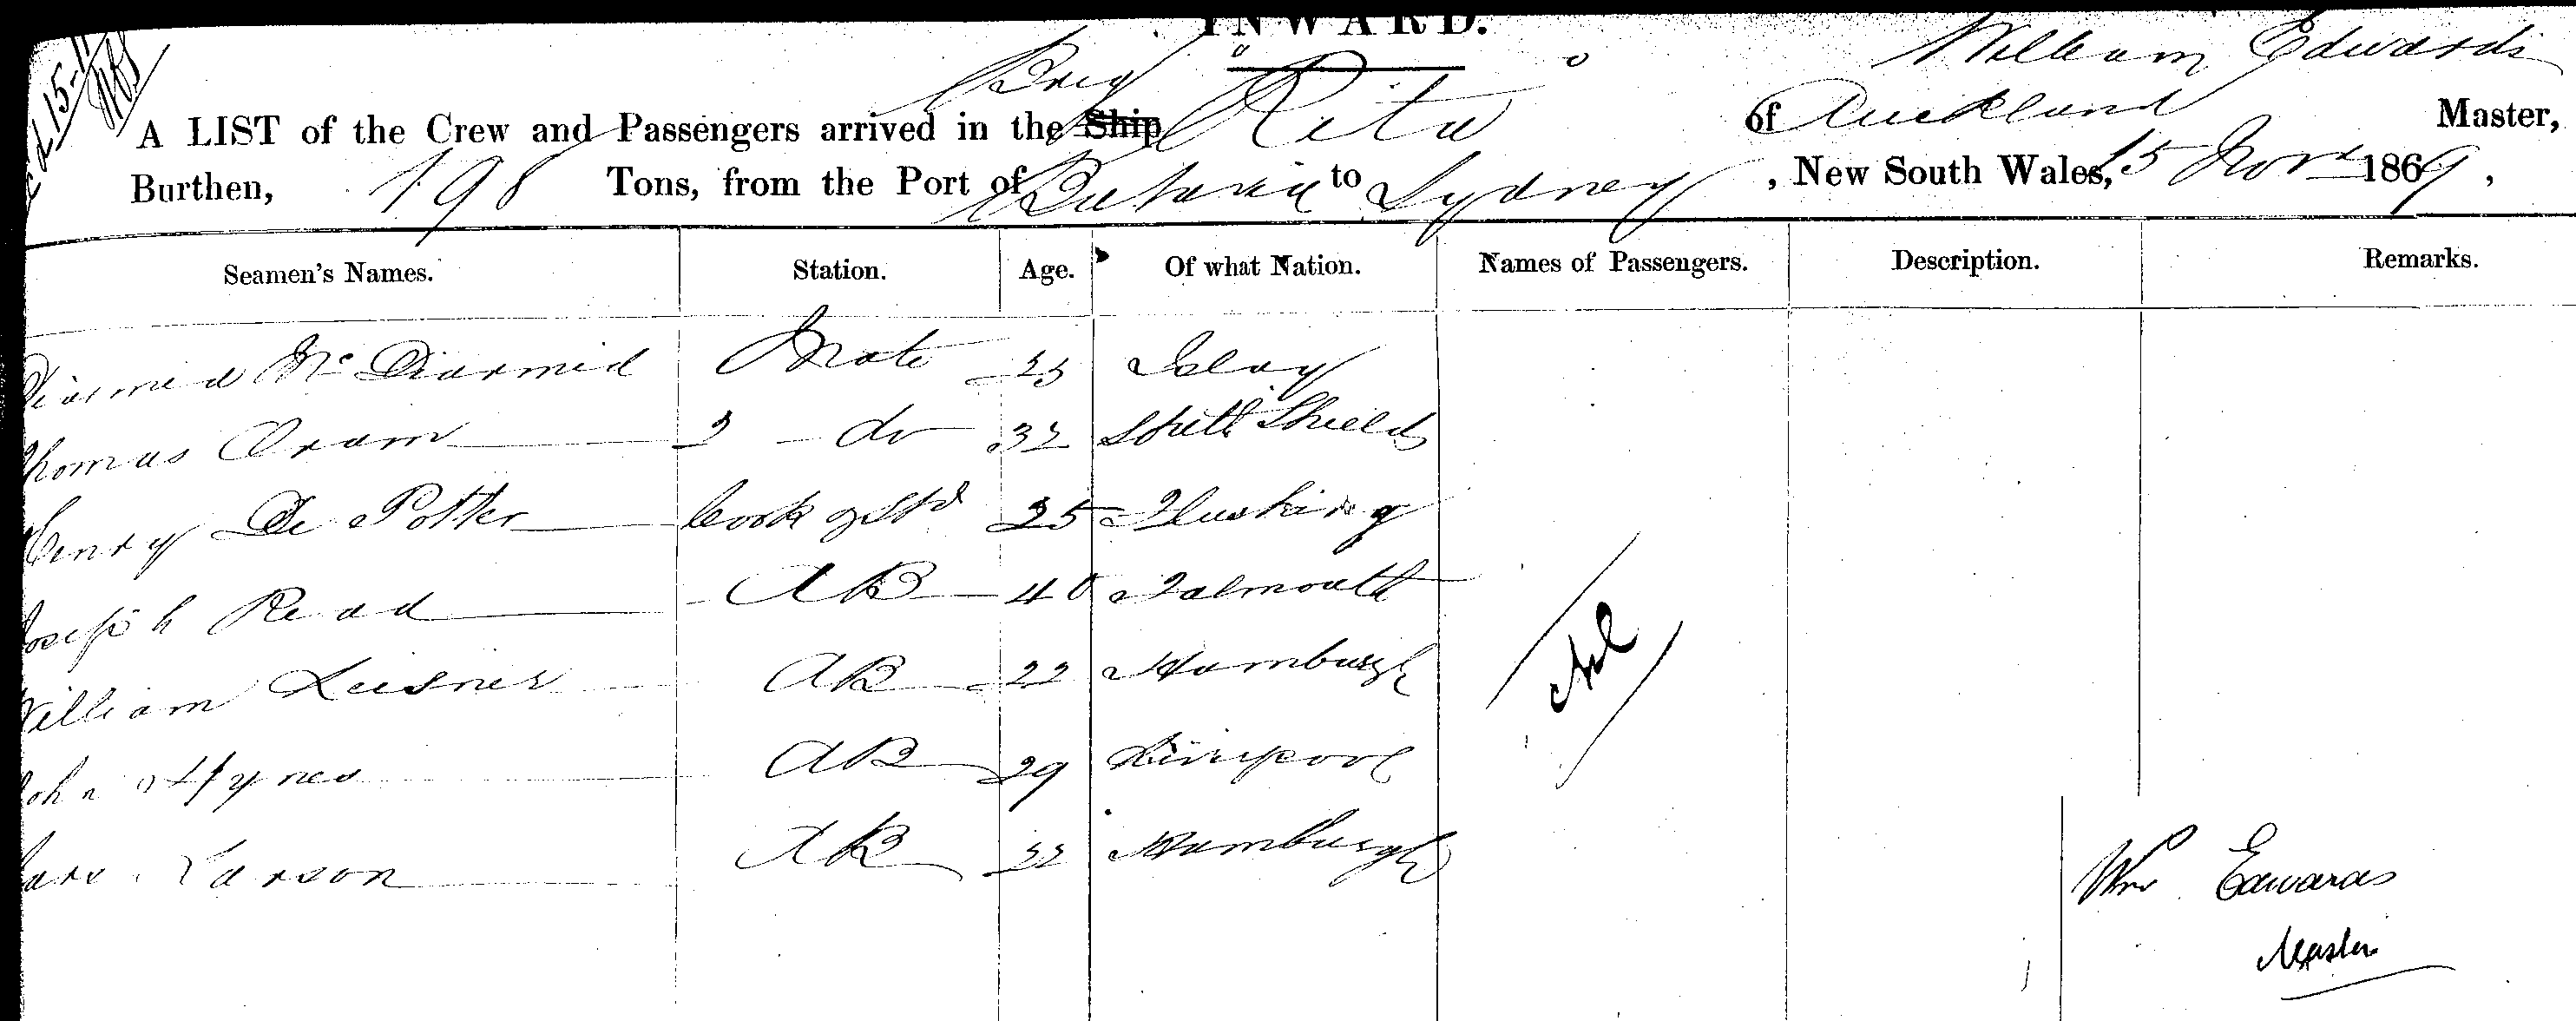 INWARD.
William Edwards
Brig "Rita"
A LIST of the Crew and Passengers arrived in the Ship of Auckland Master,
Burthen, 198 Tons, from the Port of Batavia to Sydney, New South Wales, 15 Novr 1869,
Seamen's Names. Station. Age. Of what Nation. Names of Passengers. Description. Remarks.
Diarmid McDiarmid Mate Islay
Thomas Oram 2 - do 32 South Shields
Henry De Potter Cook & Std 25 Flushing
Joseph Read AB 40 Falmouth
William Leisner AB 22 Hamburgh
Nil
John Hynes AB 29 Liverpool
Larson AB 22 Hamburgh
Wm Edwards
Master